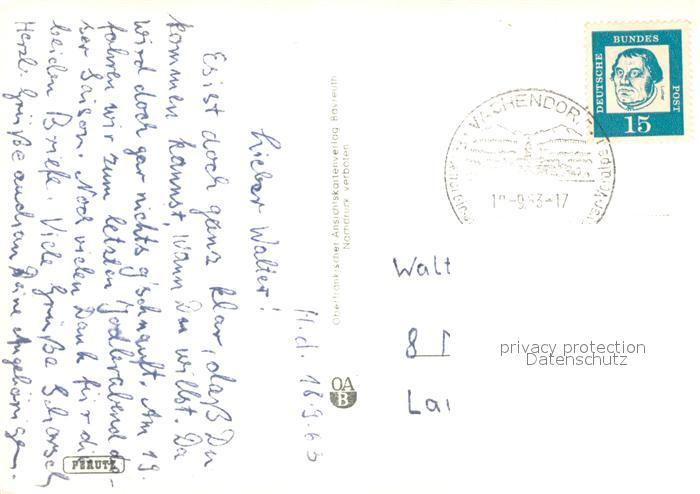 H.d. 18.9.63
Lieber Walter!
Es ist doch ganz klar, daß Du
kommen kannst, wann Du willst. Da
wird doch gar nichts g'schnauft. Am 19.
fahren wir zum letzten Jodlerabend d-
ser Saison. Noch vielen Dank für die
beiden Briefe. Viele Grüße Schorsch
Herzl. Grüße auch an Deine Angehörigen.
PERUTZ
Oberfränkischer Ansichtskartenverlag Bayreuth
Nachdruck verboten
OA
B
DEUTSCHE
BUNDES
POST
15
-9.63-17
Walt
8
Lai
privacy protection
Datenschutz